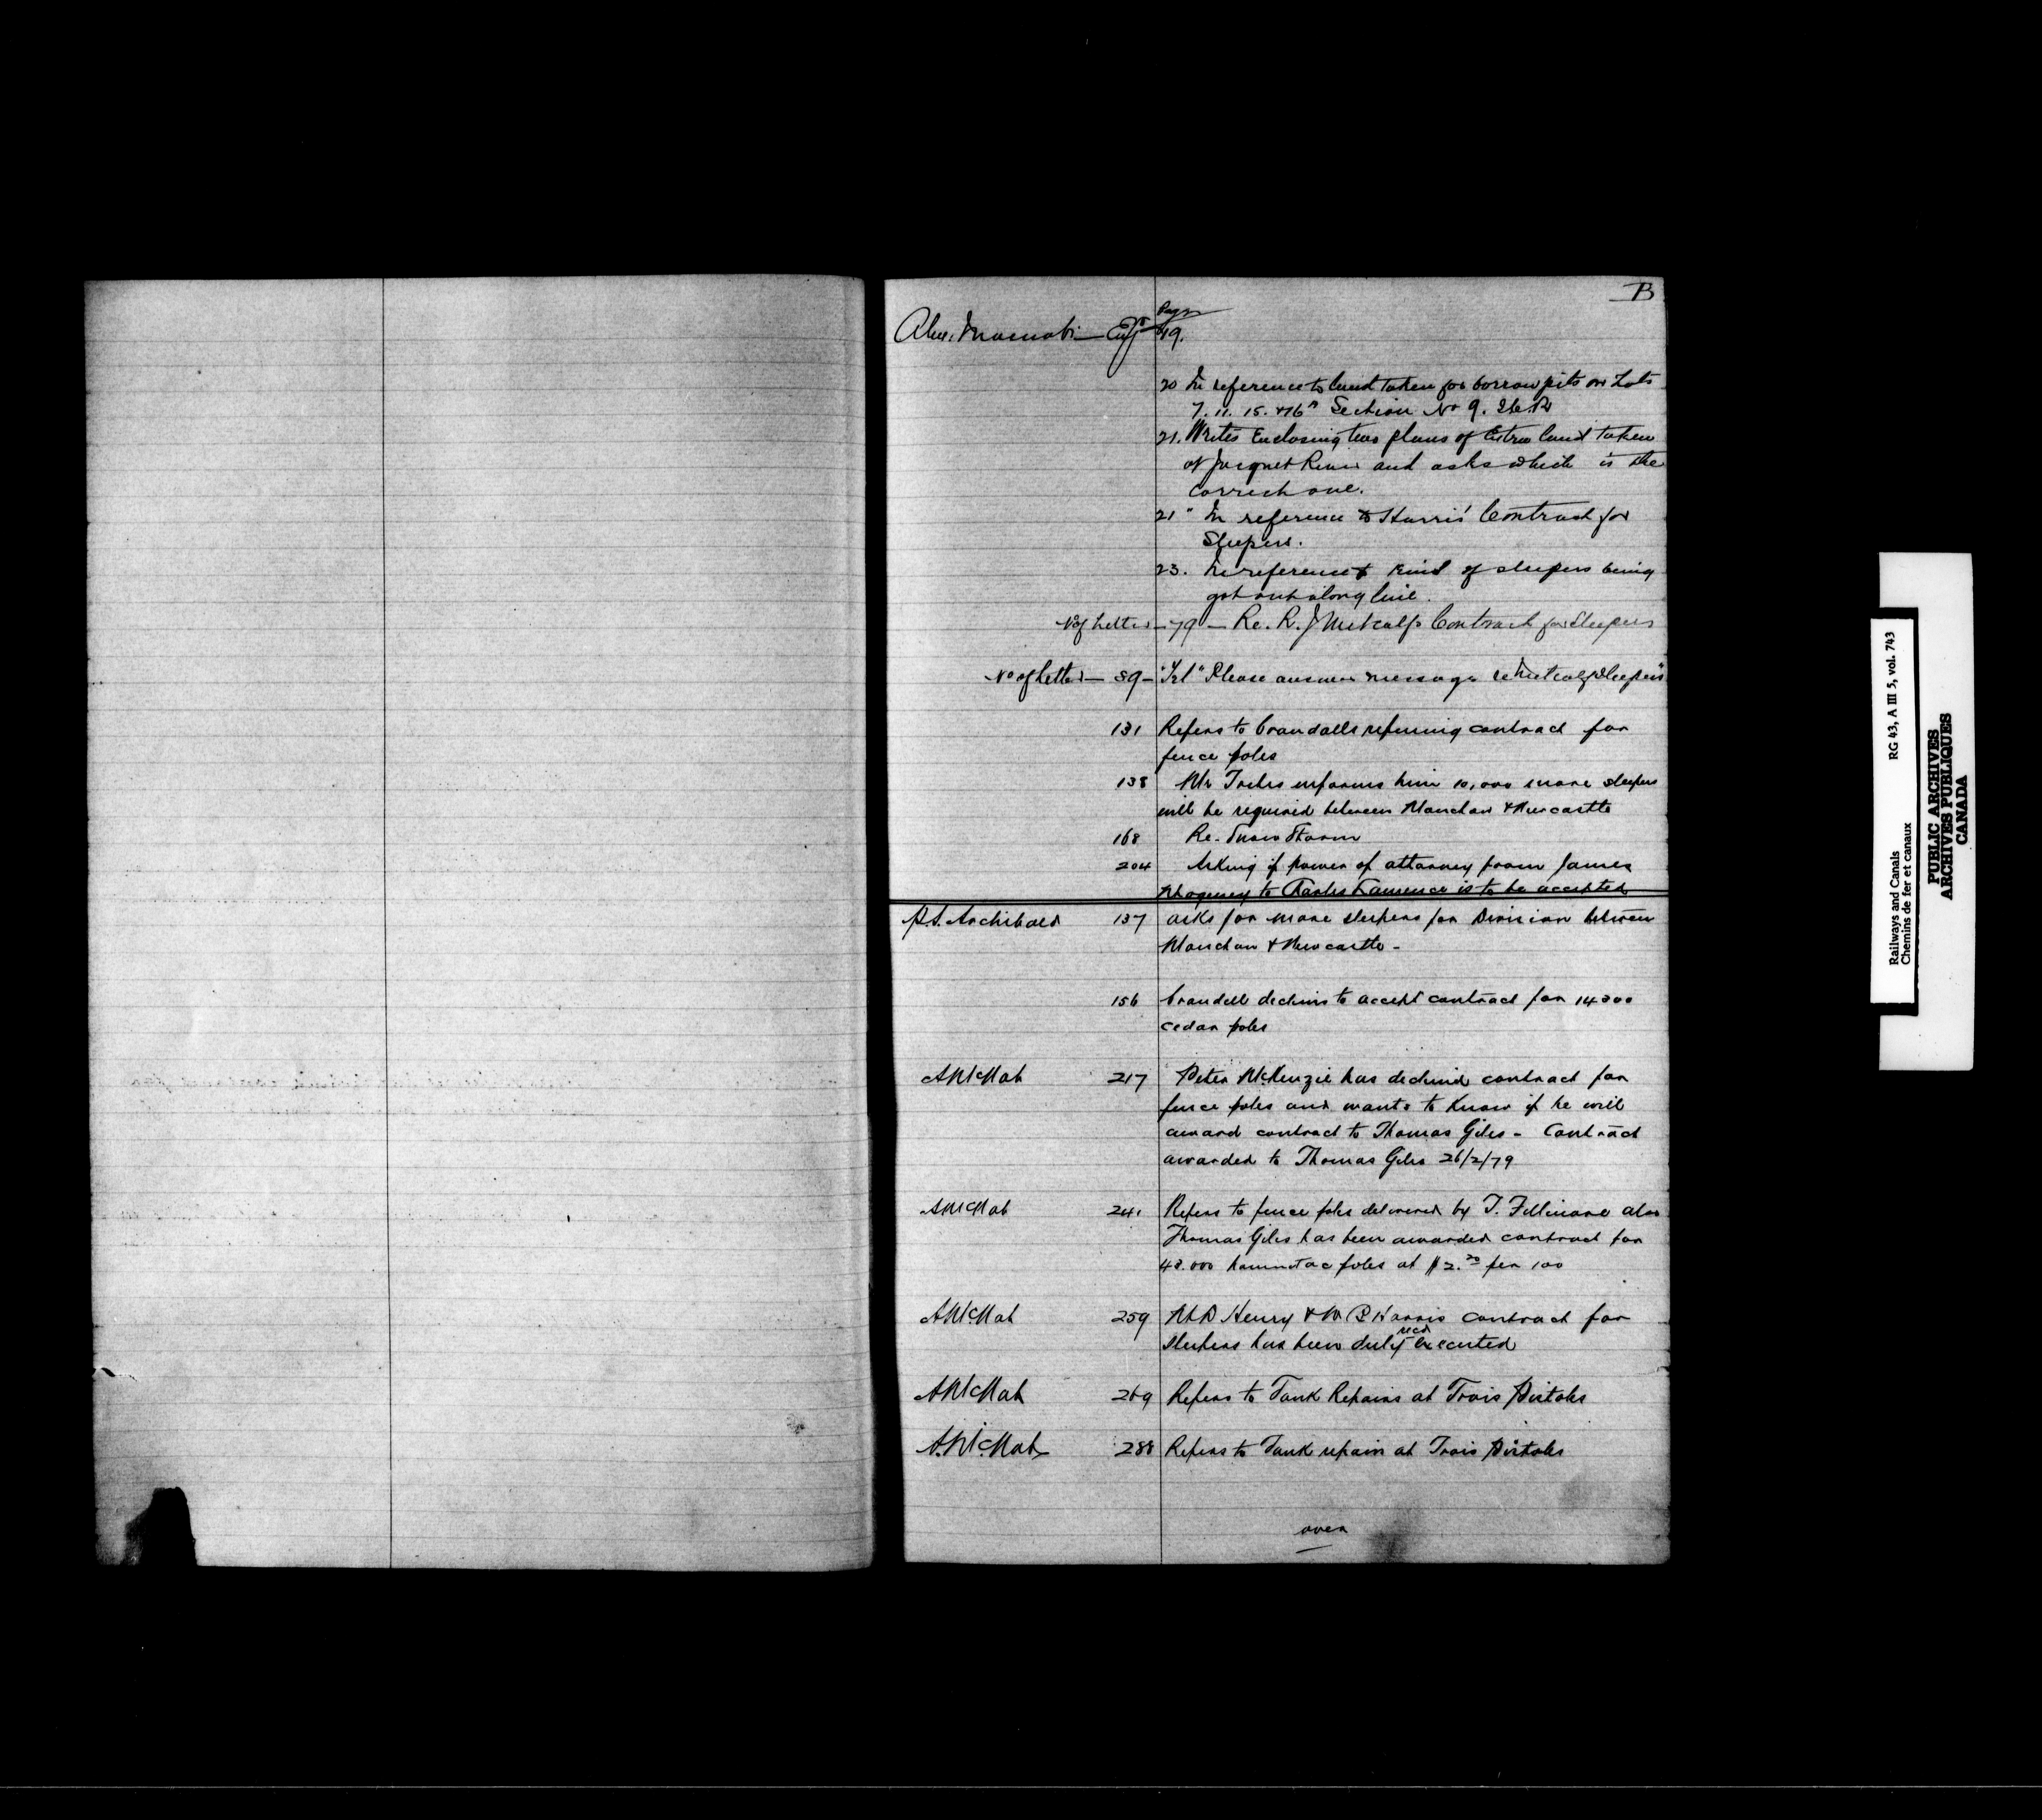 B
Page
Alex. Macnab — Engr 19.
20 In reference to land taken for borrow pits on Lots
7. 11. 15. & 16 Section No 9. I.C.R
21. Writes Enclosing two plans of Extra land taken
at Jacquet River and asks which is the
correct one.
21 " In reference to Harris' Contract for
Sleepers.
23. In reference to kind of sleepers being
got out along line.
No of Letter — 79 — Re. R. J Metcalf's Contract for Sleepers
No of Letter — 89 — "Tel" Please answer message re Metcalf Sleepers"
131 Refers to Crandalls refusing contract for
fence poles
138 Mr informs him 10,000 more sleepers
will be required between Moncton & Newcastle
168 Re. Snow Storm
204 Asking if power of attorney from James
to Charles Lawrence is to be accepted
P.S. Archibald 137 asks for more sleepers for Division between
Moncton & Newcastle -
156 Crandell declines to accept contract for 14000
cedar poles
A McNab 217 Peter McKenzie has declined contract for
fence poles and wants to know if he will
award contract to Thomas Giles - Contract
awarded to Thomas Giles 26/2/79
A McNab 241 Refers to fence poles delivered by T. Fillimore also
Thomas Giles has been awarded contract for
48.000 poles at $2.20 per 100
A McNab 259 Henry & W P Harris contract for
recd
sleepers has been duly executed
A McNab 269 Refers to Tank Repairs at Trois Pistoles
A. McNab 288 Refers to Tank repairs at Trois Pistoles
over
Railways and Canals RG 43, A III 5, vol. 743
Chemins de fer et canaux
PUBLIC ARCHIVES
ARCHIVES PUBLIQUES
CANADA